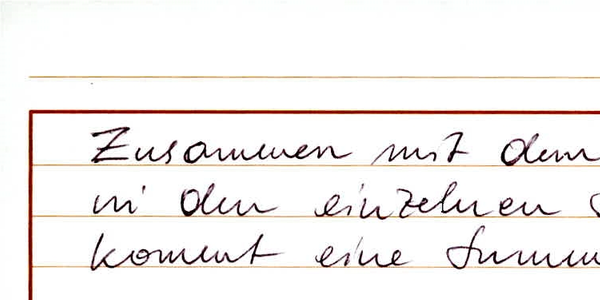 Zusammen mit dem
in den einzelnen
kommt eine Summ